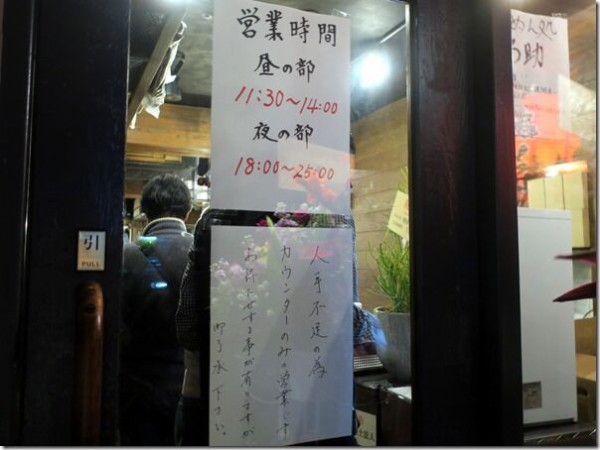 営業時間
昼の部
11:30～14:00
夜の部
18:00～25:00
人手不足の為
カウンターのみの営業です
お待たせする事が有りますが
御了承下さい。
引
PULL
めん処